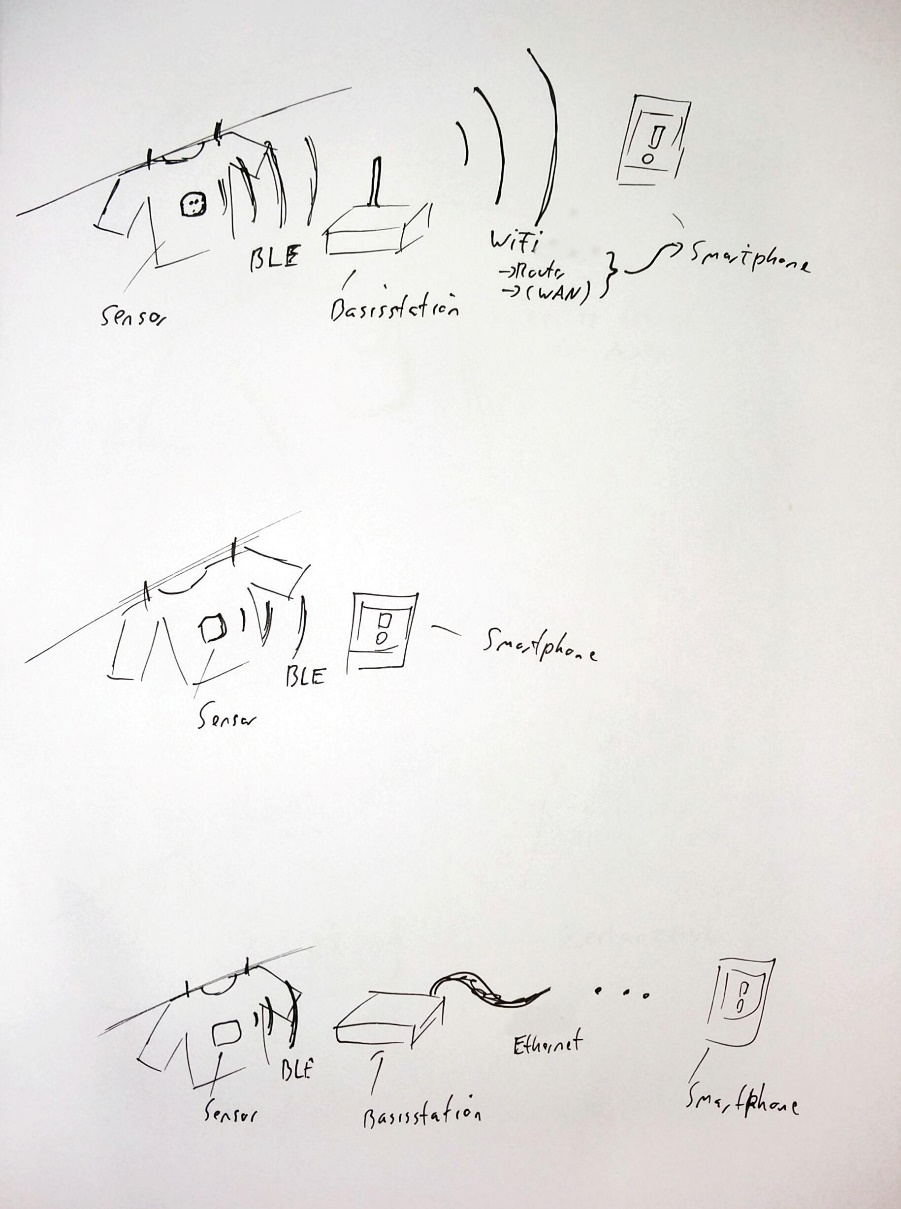 BLE
Sensor
Basisstation
WiFi
→Router
→(WAN)
Smartphone
BLE
Sensor
Smartphone
BLE
Sensor
Basisstation
Ethernet
Smartphone